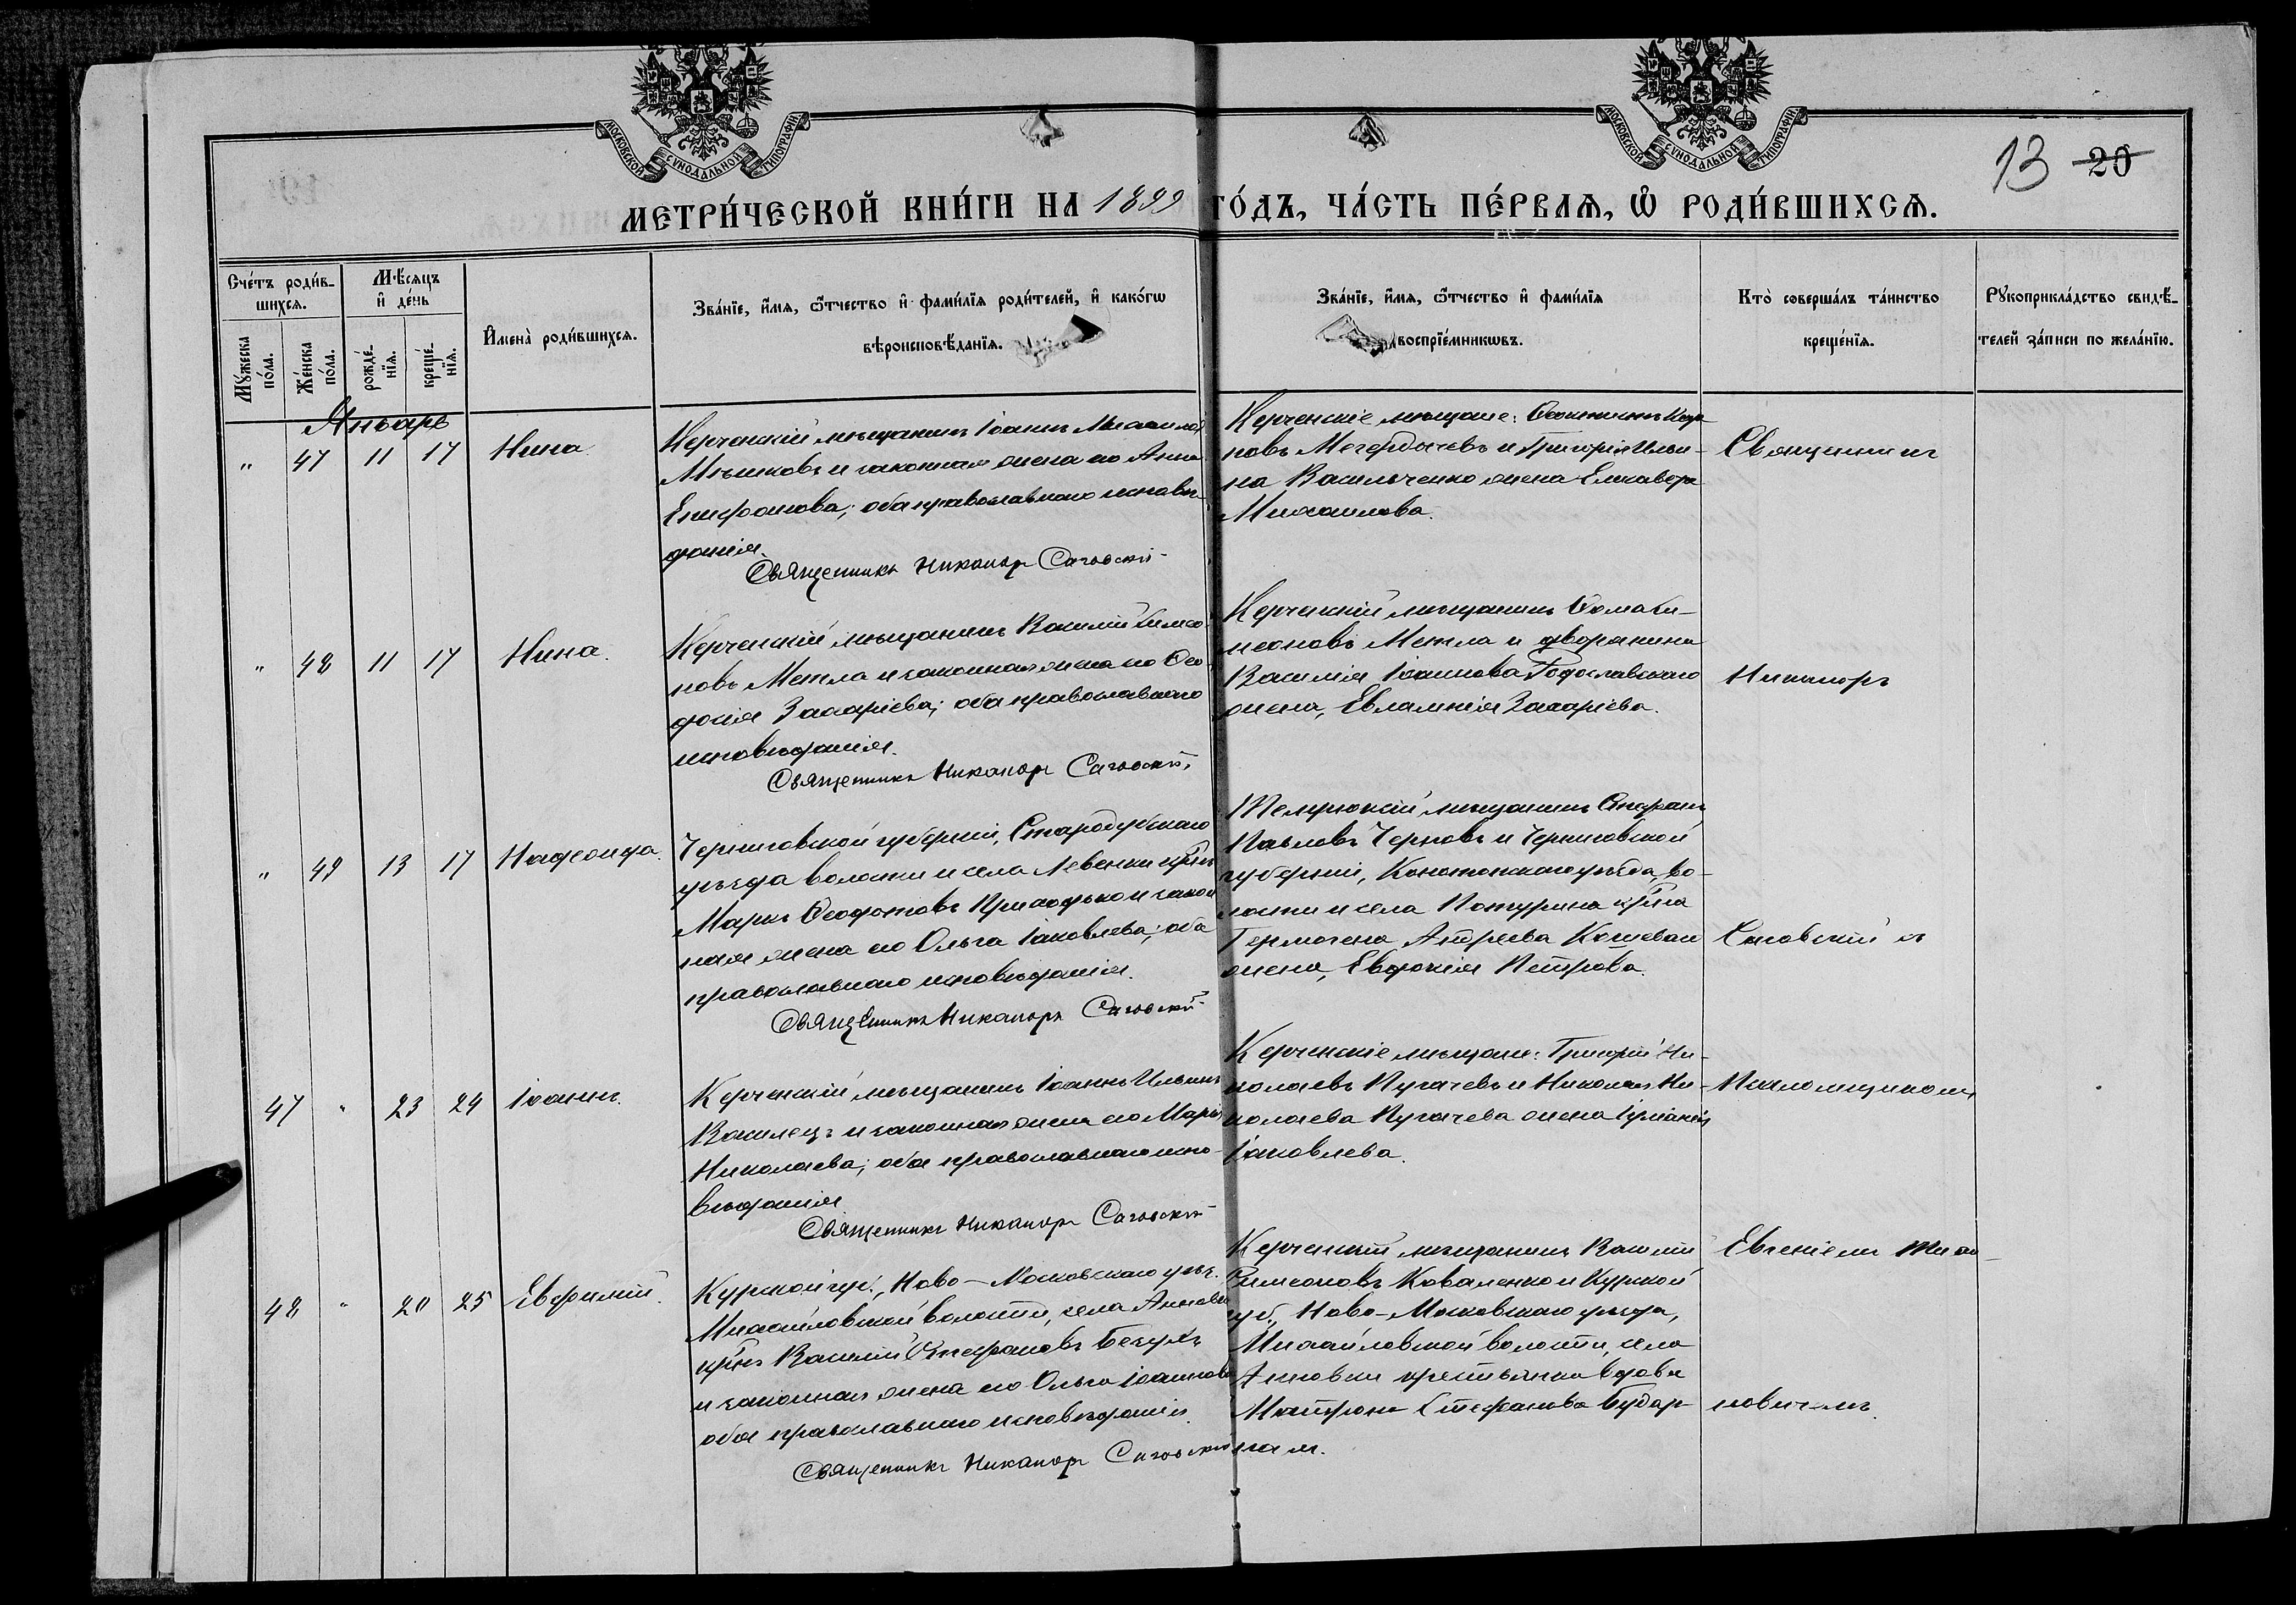 МОСКОВСКОЙ СѴНОДАЛЬНОЙ ТИПОГРАФІИ
МОСКОВСКОЙ СѴНОДАЛЬНОЙ ТИПОГРАФІИ
13 20
МЕТРИ́ЧЕСКОЙ КНИ́ГИ НА 1899 ГО́ДЪ, ЧА́СТЬ ПЕ́РВАѦ, Ѡ҆ РОДИ́ВШИХСѦ.
Сче́тъ роди́в-
шихсѧ.
Мꙋ́жеска по́ла.
Же́нска по́ла.
Мѣ́сѧцъ и҆ де́нь
рожде́-нїѧ.
креще́-нїѧ.
И҆мена̀ роди́вшихсѧ.
Зва́нїе, и҆́мѧ, ѻ҆́тчество и҆ фами́лїѧ роди́телей, и҆ како́гѡ
вѣроисповѣ́данїѧ.
Зва́нїе, и҆́мѧ, ѻ҆́тчество и҆ фами́лїѧ
воспрїе́мникѡвъ.
Кто̀ соверша́лъ та́инство
креще́нїѧ.
Рꙋкоприкла́дство свидѣ́-
телей за́писи по жела́нїю.
Январь
" 47 11 17 Нина.
Керченскій мѣщанинъ Іоаннъ Михаиловъ
Мѣшковъ и законная жена его Анна
Епифанова; оба православнаго исповѣ-
данія.
Священникъ Никаноръ Саговскій
Керченскіе мѣщане:
новъ Мегердычевъ и Григорія Ильи-
на Васильченко жена Елисавета
Михаилова.
Священникъ
" 48 11 17 Нина.
Керченскій мѣщанинъ Василій Симео-
новъ Метла и законная жена его Ѳео-
досія Захаріева; оба православнаго
исповѣданія.
Священникъ Никаноръ Саговскій
Керченскій мѣщанинъ Ѳома Си-
меоновъ Метла и дворянина
Василія Іоаннова Годославскаго
жена, Евлампія Захаріева.
Никаноръ
" 49 13 17
Черниговской губерніи, Стародубскаго
уѣзда волости и села Левенки кр҃нъ
Маркъ Ѳеодотовъ Приходько и закон-
ная жена его Ольга Іаковлева; оба
православнаго исповѣданія.
Священникъ Никаноръ Саговскій
Темрюкскій мѣщанинъ Стефанъ
Павловъ Черновъ и Черниговской
губерніи, Конотопскаго уѣзда, во-
лости и села кр҃на
Гермогена Андреева
жена, Евдокія Петрова.
Саговскій съ
47 " 23 24 Іоаннъ.
Керченскій мѣщанинъ Іоаннъ Ильинъ
Василецъ и законная жена его Марія
Николаева; оба православнаго испо-
вѣданія
Священникъ Никаноръ Саговскій
Керченскіе мѣщане: Григорій Ни-
колаевъ Пугачевъ и Николая Ни-
колаева Пугачева жена Іуліанія
Іаковлева.
Псаломщикомъ
48 " 20 25 Евфимій.
Курской губ., Ново-Московскаго уѣз.
Михайловской волости, села Анновки
кр҃нъ Василій Стефановъ Бегухъ
и законная жена его Ольга Іоаннова
оба православнаго исповѣданія.
Священникъ Никаноръ Саговскій
Керченскій мѣщанинъ Василій
Симеоновъ Коваленко и Курской
губ., Ново-Московскаго уѣзда,
Михайловской волости, села
Анновки крестьянка вдова
Матрона Стефанова
Евгеніемъ
новичемъ.